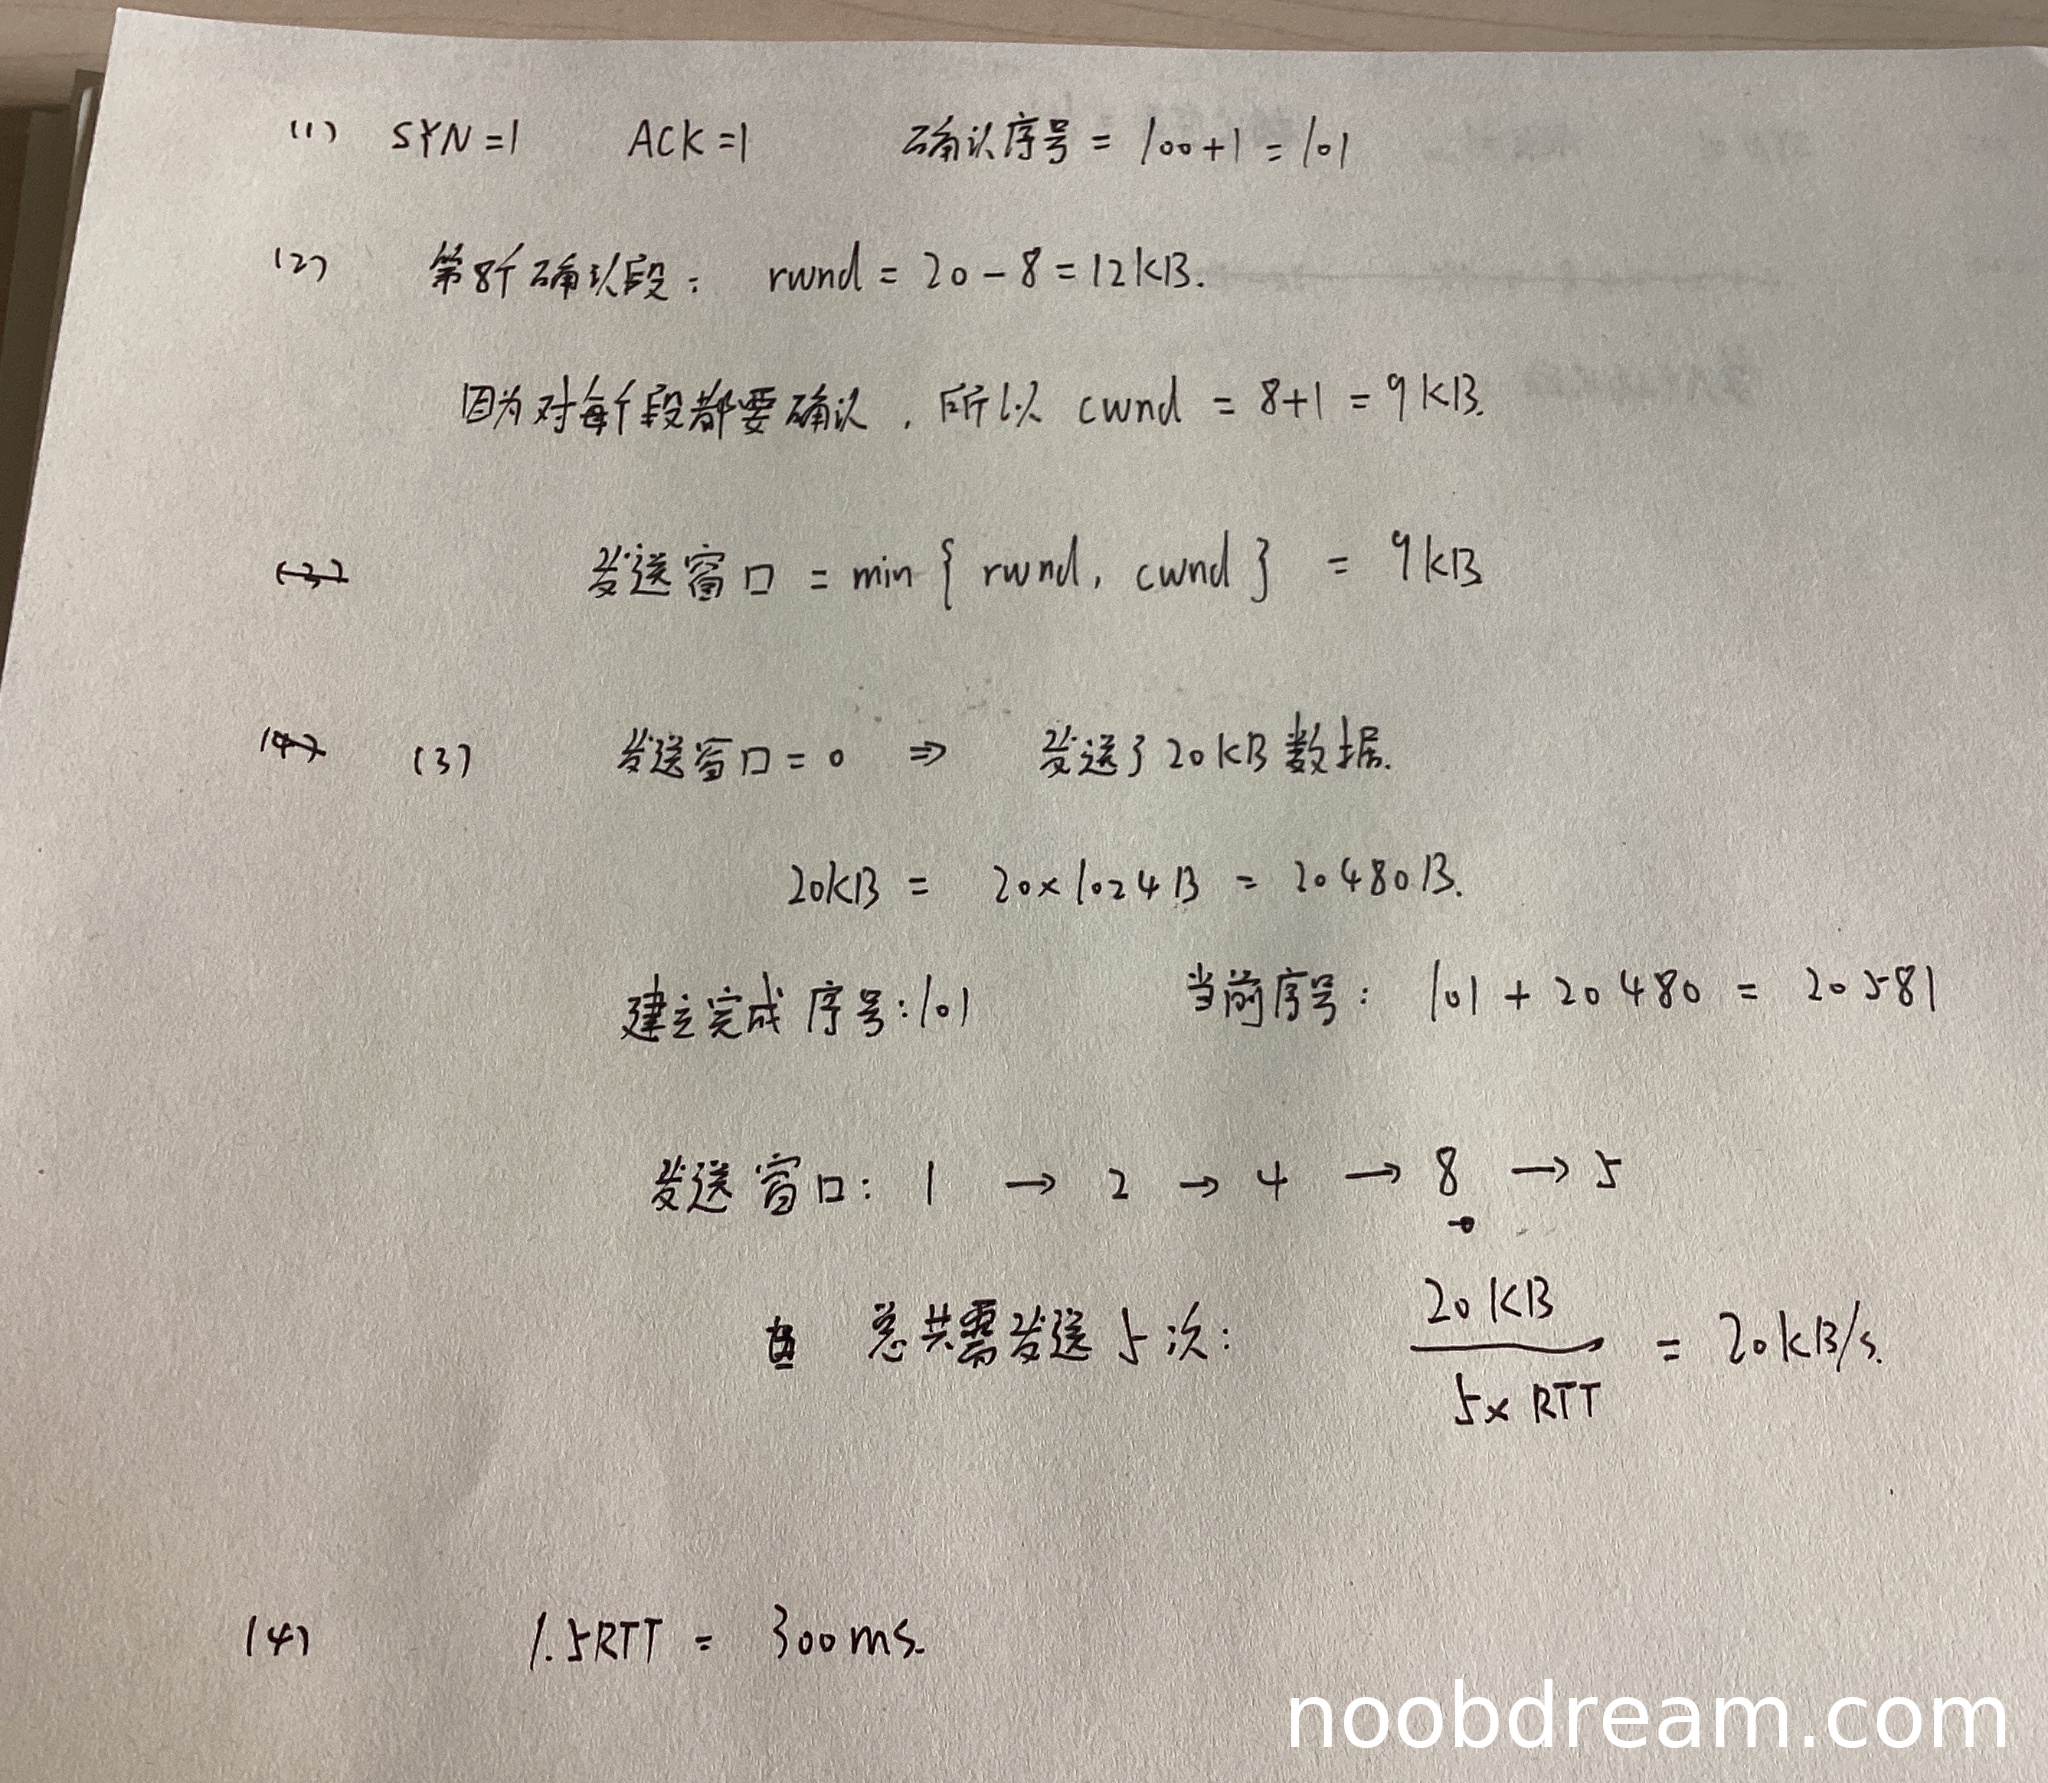 (1) SYN=1 ACK=1 确认序号 = 100+1 = 101
(2) 第8个确认段: rwnd = 20-8=12KB.
因为对每个段都要确认, 所以 cwnd = 8+1 = 9KB.
(3) 发送窗口 = min { rwnd, cwnd } = 9KB
(4) (3) 发送窗口=0 ⇒ 发送了20KB数据.
20KB = 20×1024B = 20480B.
建立完成序号:101 当前序号: 101+20480 = 20581
发送窗口: 1 → 2 → 4 → 8 → 5
总共需发送5次: 20KB / 5×RTT = 20KB/s.
(4) 1.5RTT = 300ms.
noobdream.com